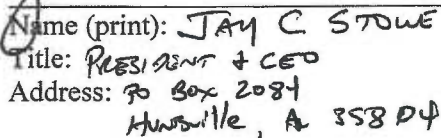 Name (print): JAY C STOWE
Title: PRESIDENT & CEO
Address: PO BOX 2084
Huntsville, AL 35804